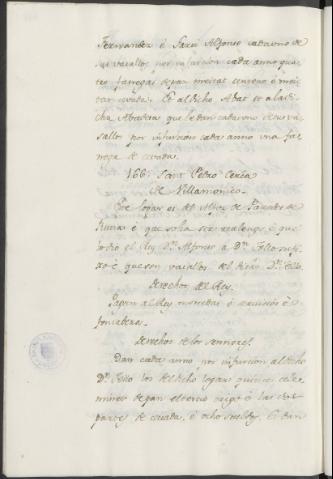 Ferrandez é Garci Alfonso cada uno de
sus vasallos por infurcion cada anno qua
tro fanegas de pan meitat centeno é mei
tat cevada. Et al dicho Abat et a la di
cha Abadesa que le dan cada uno de sus va
sallos por infurcion cada anno una fa
nega de cevada.
166. Sant Pedro cerca
de Villamonico.
Este logar es del Alfoz de
é que solia ser realengo, é que
lo dio el Rey Dn. Alfonso á Dn. Tello su fi
jo é que son vasallos del dicho Dn. Tello.
Derechos del Rey.
Pagan al Rey monedas é servicios é
fonsadera.
Derechos de los sennores.
Dan cada anno por infurcion al dicho
Dn. Tello los del dicho logar quince cele
mines de pan el tercio trigo é las dos
partes de cevada, é ocho sueldos. Et dan